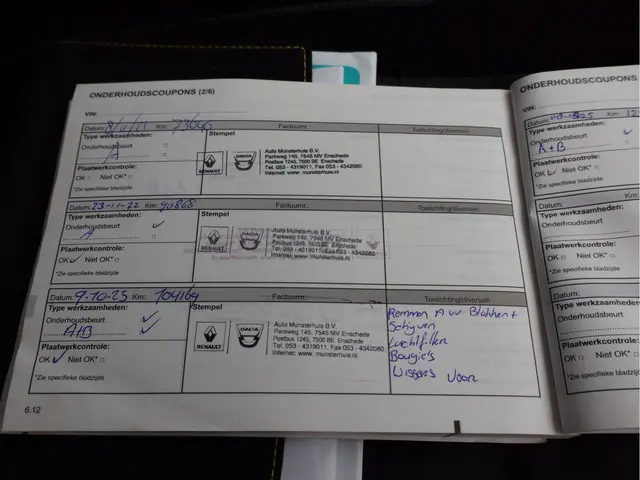 ONDERHOUDSCOUPONS (2/6)
VIN:
Datum: 8/11/21 Km: 73040 Factuurnr.: Toelichting/diversen
Type werkzaamheden: Stempel
Onderhoudsbeurt
A
Plaatwerkcontrole:
OK Niet OK*
*Zie specifieke bladzijde
RENAULT DACIA
Auto Munsterhuis B.V.
Parkweg 145, 7545 MV Enschede
Postbus 1245, 7500 BE Enschede
Tel. 053 - 4319011, Fax 053 - 4342080
Internet: www.munsterhuis.nl
Datum: 23-11-22 Km: 90868 Factuurnr.: Toelichting/diversen
Type werkzaamheden: Stempel
Onderhoudsbeurt
A
Plaatwerkcontrole:
OK Niet OK*
*Zie specifieke bladzijde
RENAULT DACIA
Auto Munsterhuis B.V.
Parkweg 145, 7545 MV Enschede
Postbus 1245, 7500 BE Enschede
Tel. 053 - 4319011, Fax 053 - 4342080
Internet: www.munsterhuis.nl
Datum: 9-10-23 Km: 104164 Factuurnr.: Toelichting/diversen
Type werkzaamheden: Stempel
Onderhoudsbeurt
A+B
Plaatwerkcontrole:
OK Niet OK*
*Zie specifieke bladzijde
RENAULT DACIA
Auto Munsterhuis B.V.
Parkweg 145, 7545 MV Enschede
Postbus 1245, 7500 BE Enschede
Tel. 053 - 4319011, Fax 053 - 4342080
Internet: www.munsterhuis.nl
Remmen A
Schijven
Luchtfilter
Bougie's
Wissers voor
6.12
ONDERHOUDSCOUPONS
VIN:
Datum: Km: 12
Type werkzaamheden:
Onderhoudsbeurt
A+B
Plaatwerkcontrole:
OK Niet OK*
*Zie specifieke bladzijde
Datum:
Type werkzaamheden:
Onderhoudsbeurt
Plaatwerkcontrole:
OK Niet OK*
*Zie specifieke bladzijde
Datum:
Type werkzaamheden:
Onderhoudsbeurt
Plaatwerkcontrole:
OK Niet OK*
*Zie specifieke bladzijde